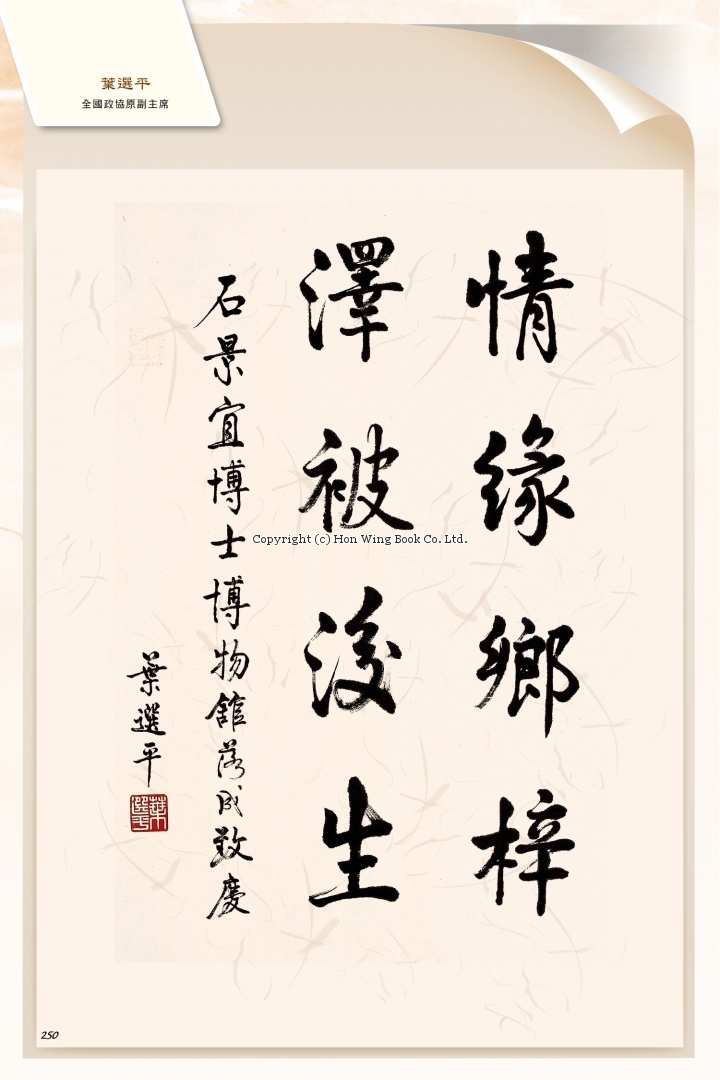 葉選平
全國政協原副主席
情緣鄉梓
澤被後生
石景宜博士博物館落成致慶
葉選平
葉選平
Copyright (c) Hon Wing Book Co. Ltd.
250